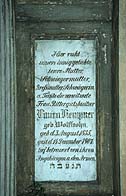 Hier ruht
unsere innig geliebte
teure Mutter,
Schwiegermutter,
Großmutter, Schwägerin
u. Tante die verwitwete
Frau Rittergutsbesitzer
geb. Wolffsohn,
geb. d. 3. August 1835,
gest. d. 15. Dezember 1907.
Tief betrauert von ihren
Angehörigen u. den Armen.
תנצבה